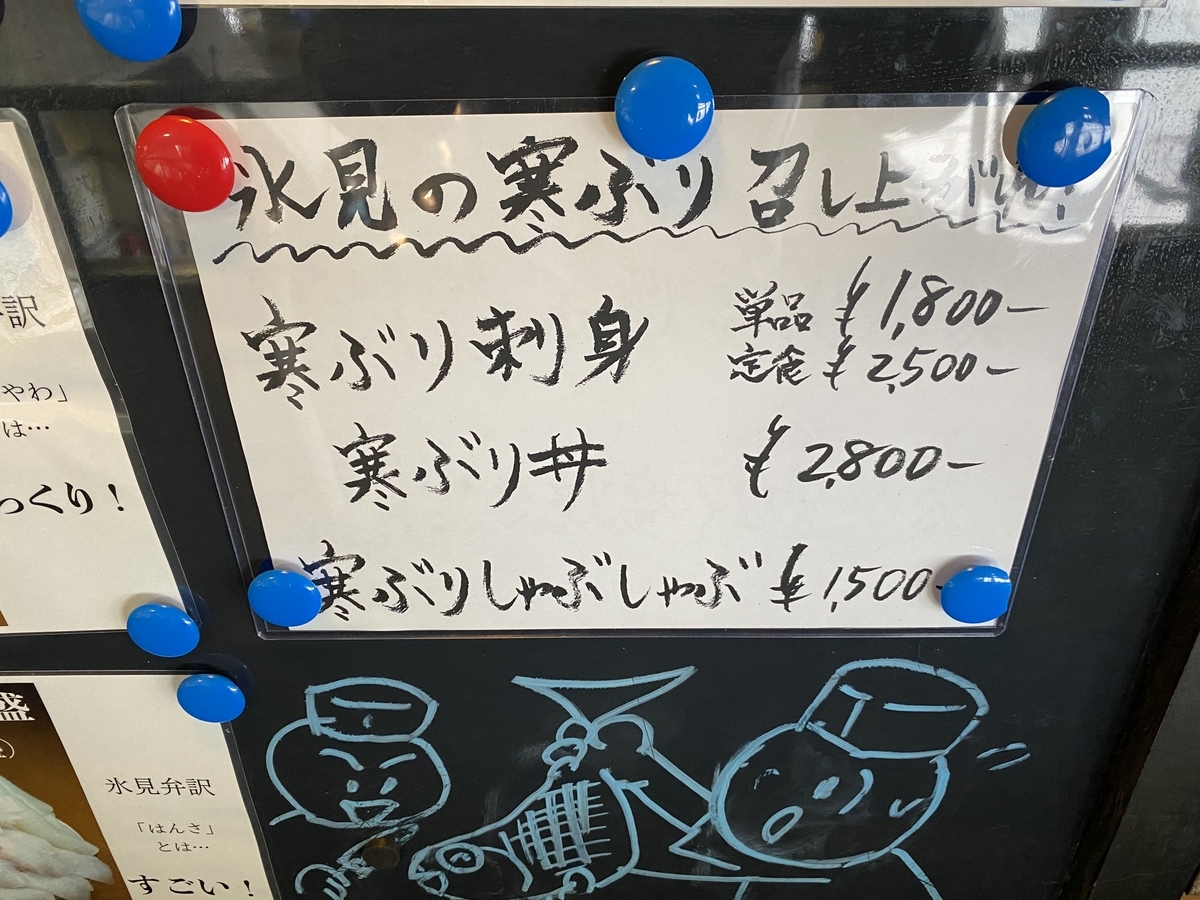 氷見の寒ぶり 召し上がれ!
寒ぶり刺身 単品 ¥1,800-
定食 ¥2,500-
寒ぶり丼 ¥2,800-
寒ぶりしゃぶしゃぶ ¥1,500-
訳
やわ」
は…
っくり!
盛
氷見弁訳
「はんさ」
とは…
すごい!